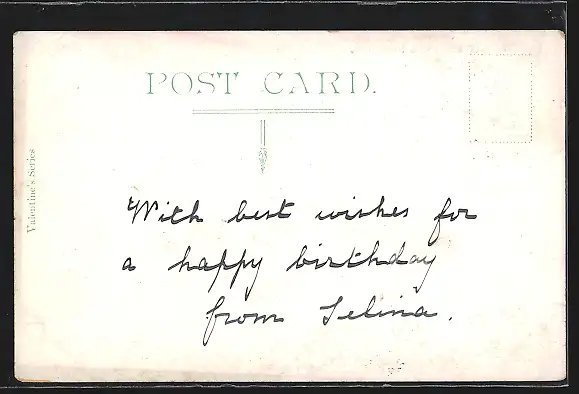 POST CARD.
Valentine's Series
With best wishes for
a happy birthday
from Selina.